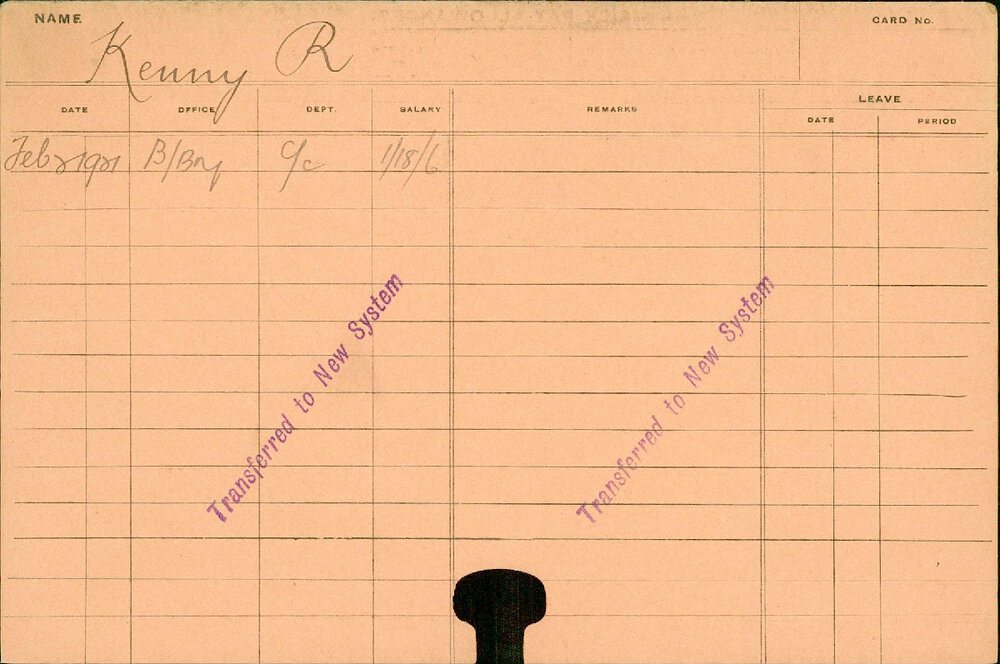 NAME
CARD No.
Kenny R
DATE OFFICE DEPT. SALARY REMARKS LEAVE
DATE PERIOD
Feb 2 1921 B/Bay c/c 1/18/6
Transferred to New System
Transferred to New System